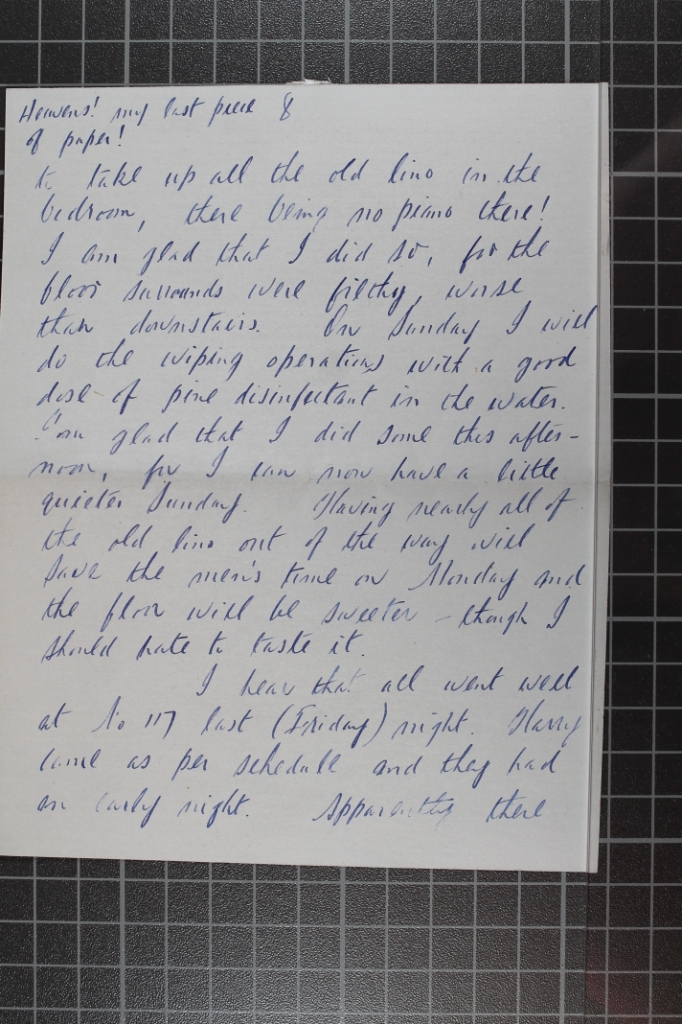 Heavens! my last piece 8
of paper!
to take up all the old lino in the
bedroom, there being no piano there!
I am glad that I did so, for the
floor surrounds were filthy, worse
than downstairs. On Sunday I will
do the wiping operations with a good
dose of pine disinfectant in the water.
I'm glad that I did some this after-
noon, for I can now have a little
quieter Sunday. Having nearly all of
the old lino out of the way will
save the men's time on Monday and
the floor will be sweeter - though I
should hate to taste it.
I hear that all went well
at No 117 last (Friday) night. Harry
came as per schedule and they had
an early night. Apparently there